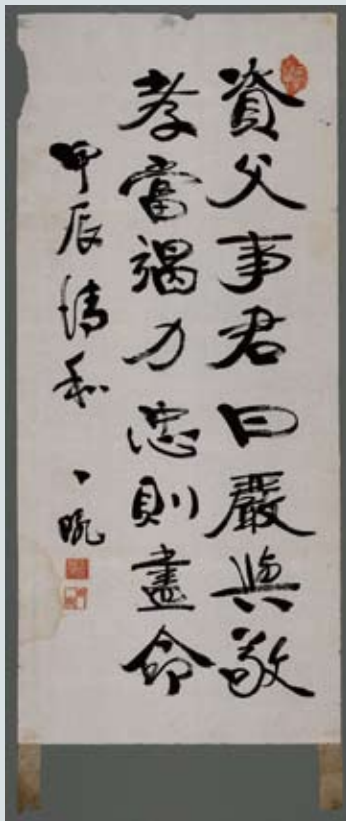 資父事君曰嚴與敬
孝當竭力忠則盡命
甲辰清和